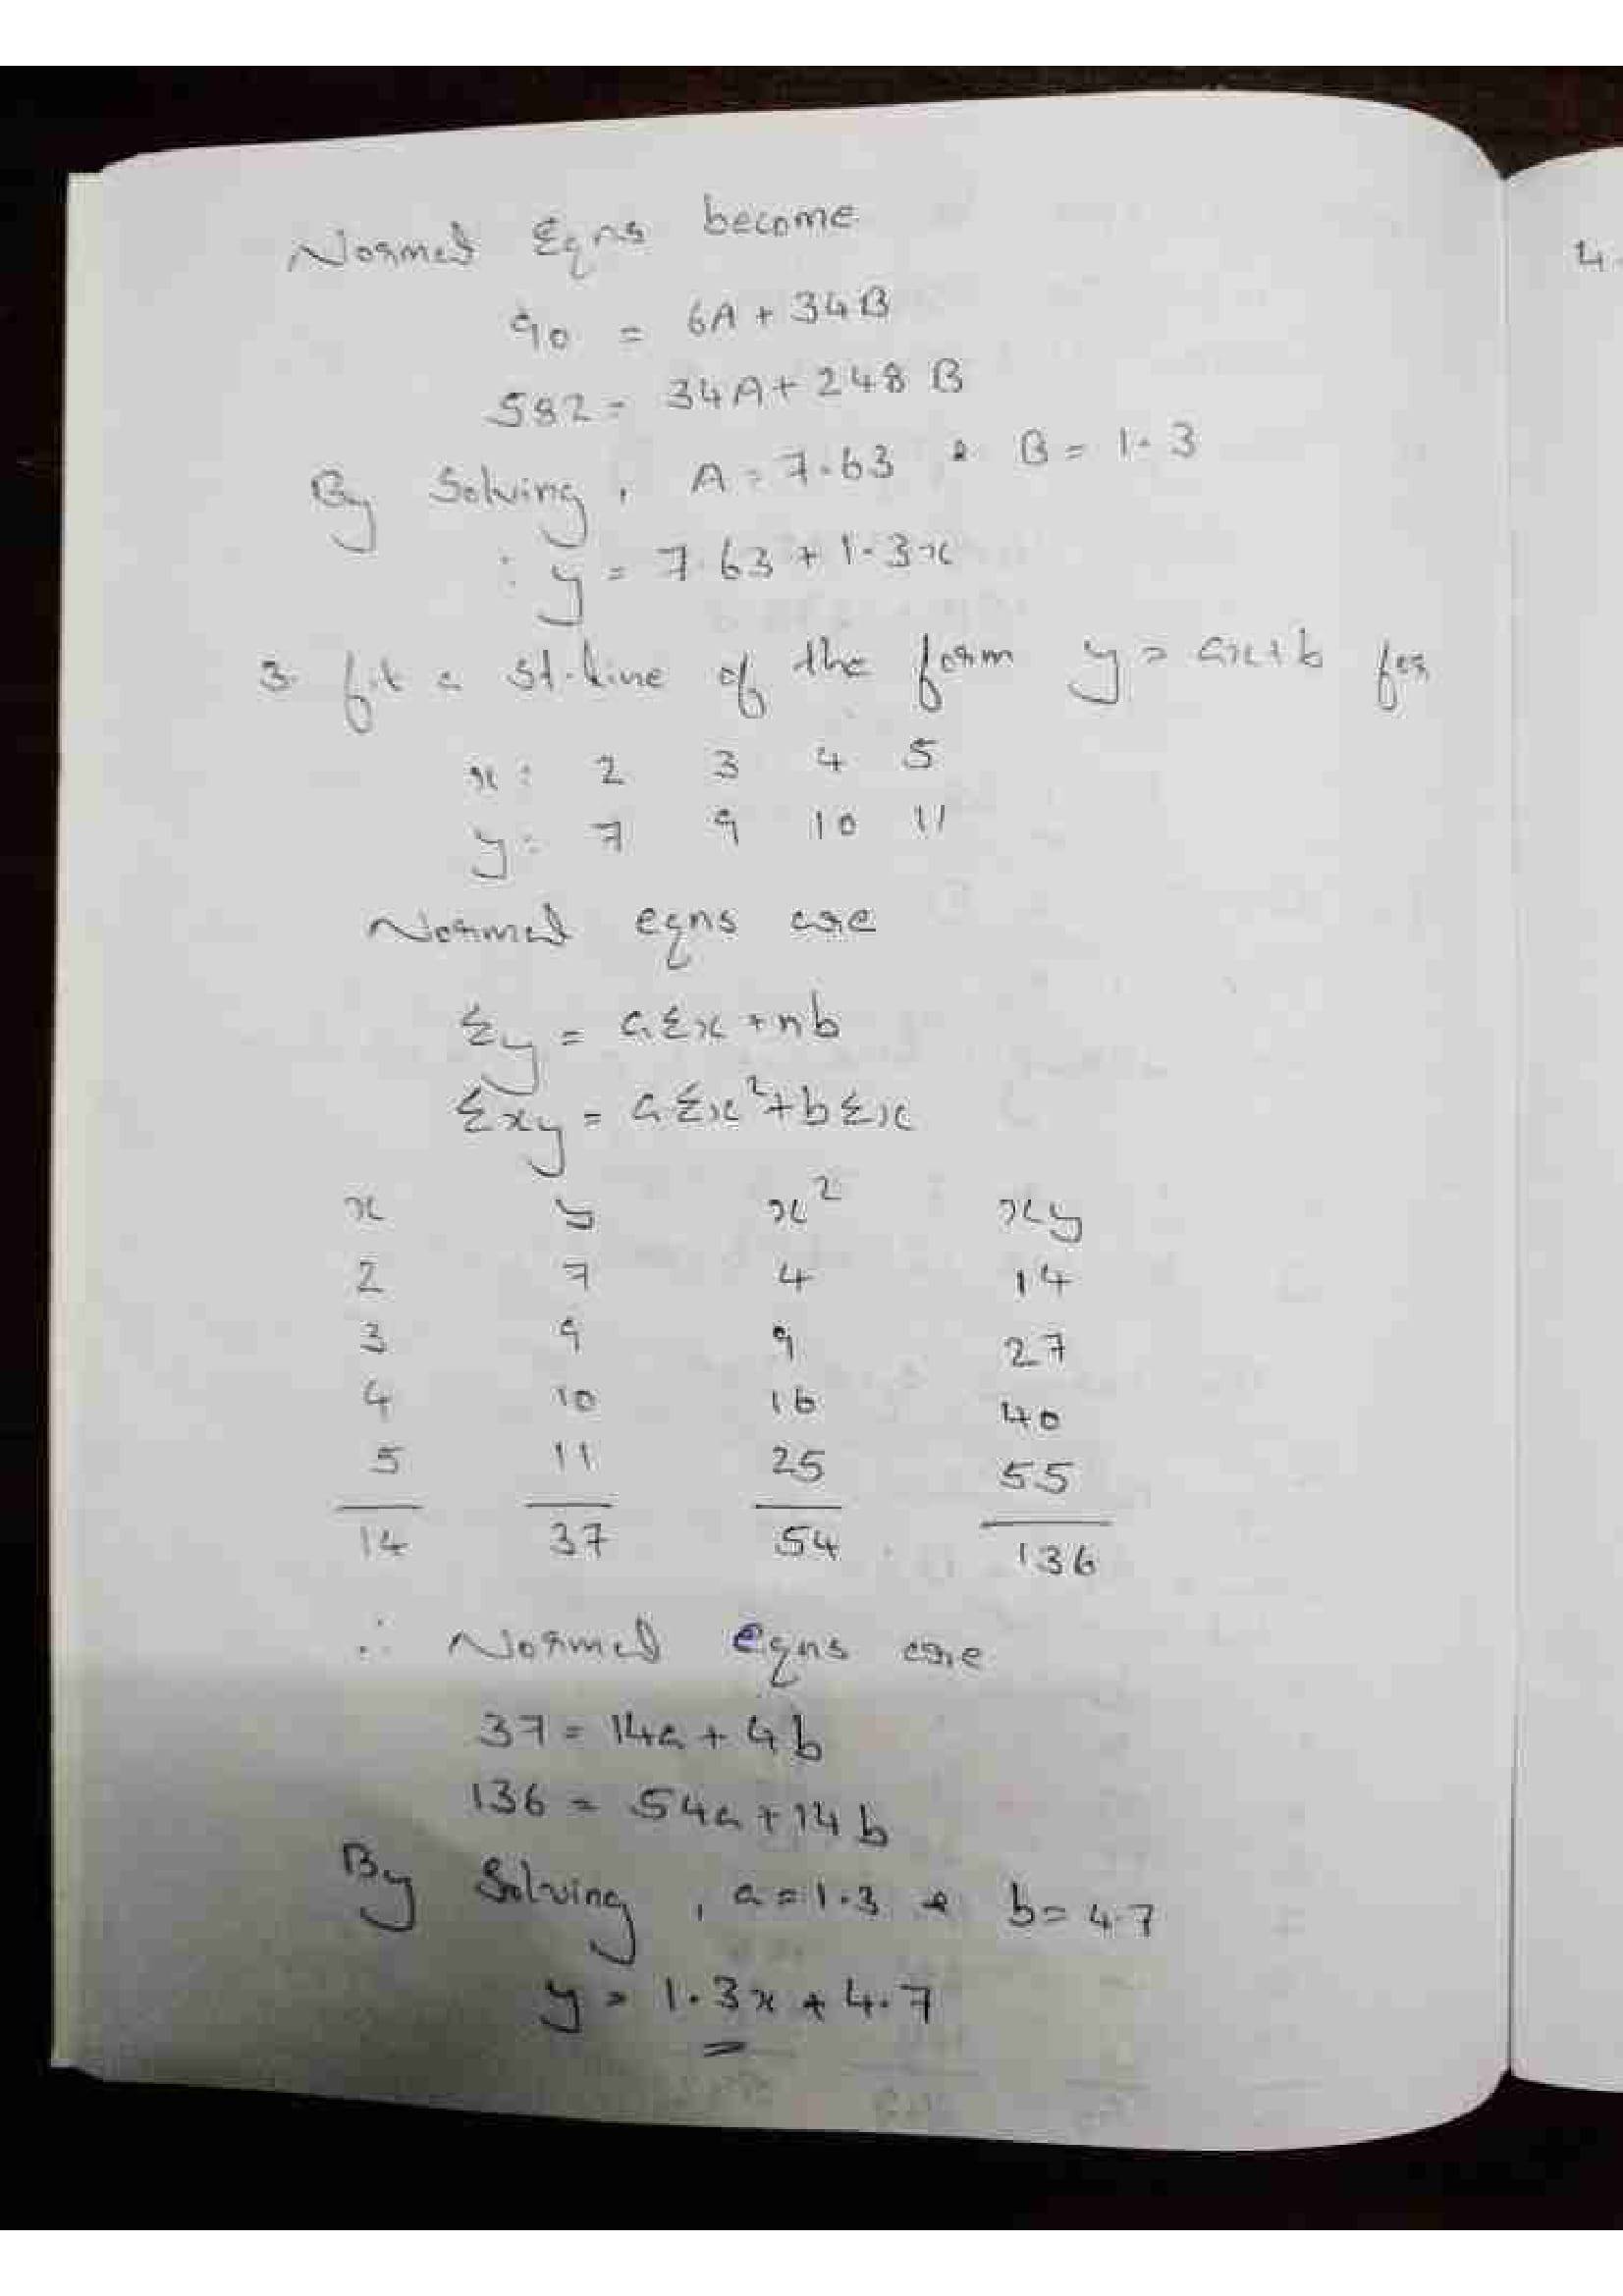 Normal Eqns become
90 = 6A + 34B
582 = 34A + 248 B
By Solving, A = 7.63 & B = 1.3
: y = 7.63 + 1.3x
3. fit a st.line of the form y = ax+b for
x: 2 3 4 5
y: 7 9 10 11
Normal eqns are
Σy = aΣx + nb
Σxy = aΣx²+bΣx
x y x² xy
2 7 4 14
3 9 9 27
4 10 16 40
5 11 25 55
14 37 54 136
∴ Normal eqns are
37 = 14a + 4b
136 = 54a + 14b
By Solving, a = 1.3 & b = 4.7
y = 1.3x + 4.7
4.